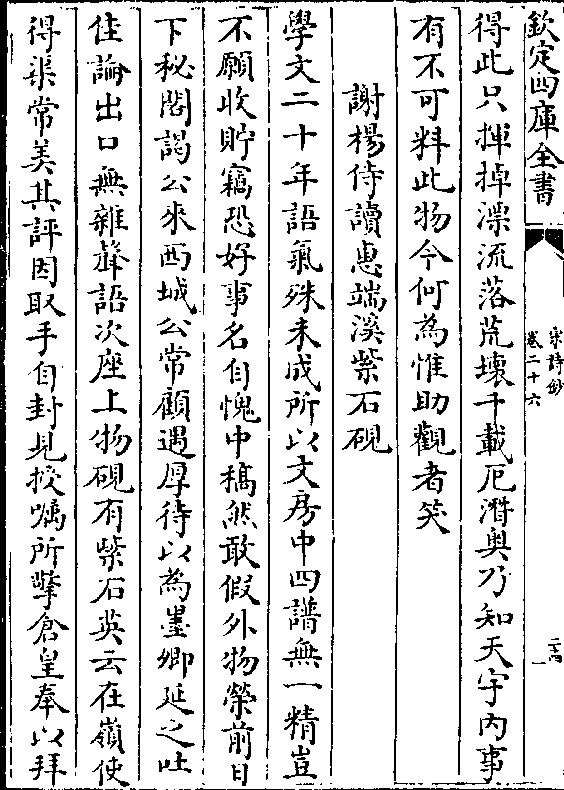 欽定四庫全書
宋詩鈔
卷二十六
二四
得此只揮掉漂流落荒壞千載厄潛奥乃知天宇内事
有不可料此物今何為惟助觀者笑
謝楊侍讀惠端溪紫石硯
學文二十年語氣殊未成所以文房中四譜無一精豈
不願收貯竊恐好事名自愧中槁然敢假外物榮前日
下秘閣謁公來西城公常顧遇厚待以為墨卿延之吐
佳論出口無雜聲語次座上物硯有紫石英云在嶺使
得渠常美其評因取手自封見授囑所擎倉皇奉以拜